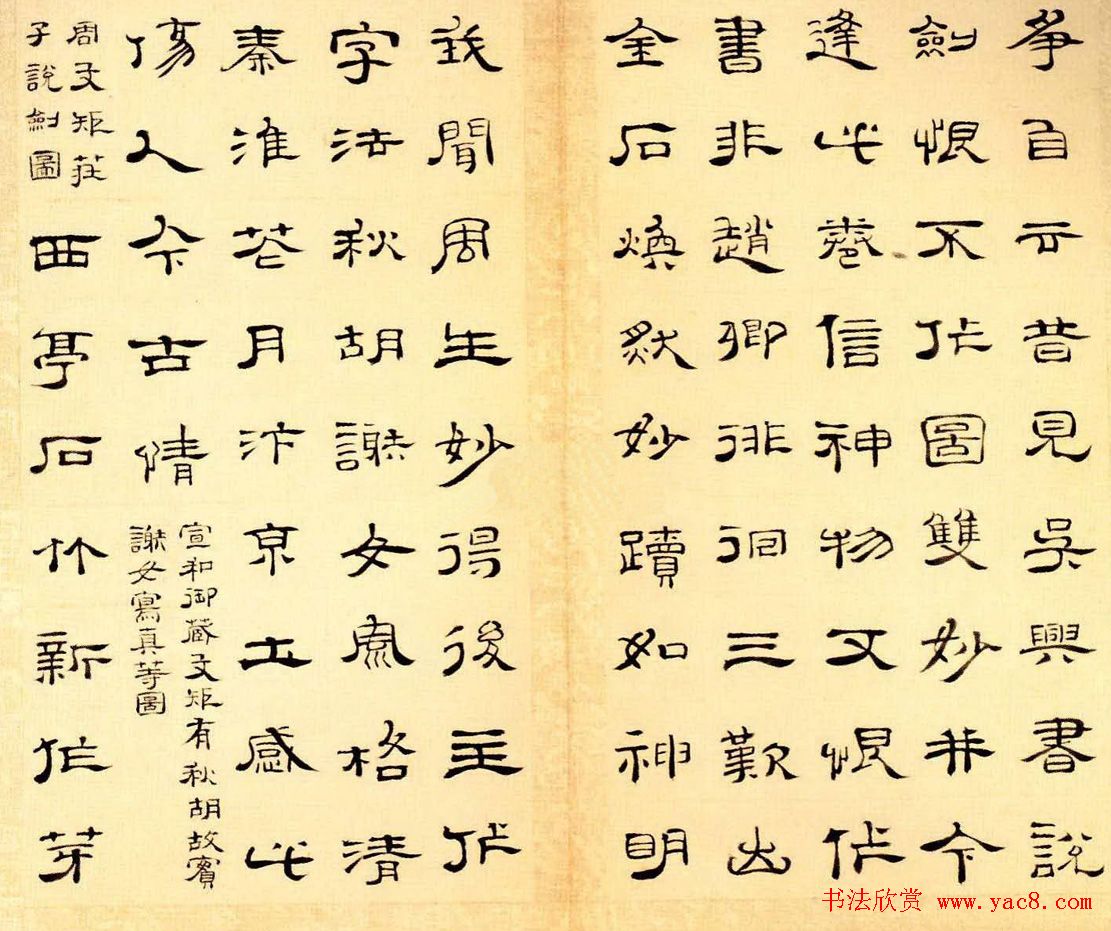 爭自云昔見吳興書說
劍恨不作圖雙妙并今
逢此卷信神物又恨作
書非趙卿徘徊三歎出
金石煥然妙蹟如神明
我聞周生妙得後主作
字法秋胡謝女風格清
秦淮花月汴京土感此
傷人今古情
宣和御蔵文矩有秋胡故實
謝女寫真等圖
周文矩莊
子說劍圖
西亭石竹新作芽
书法欣赏 www.yac8.com